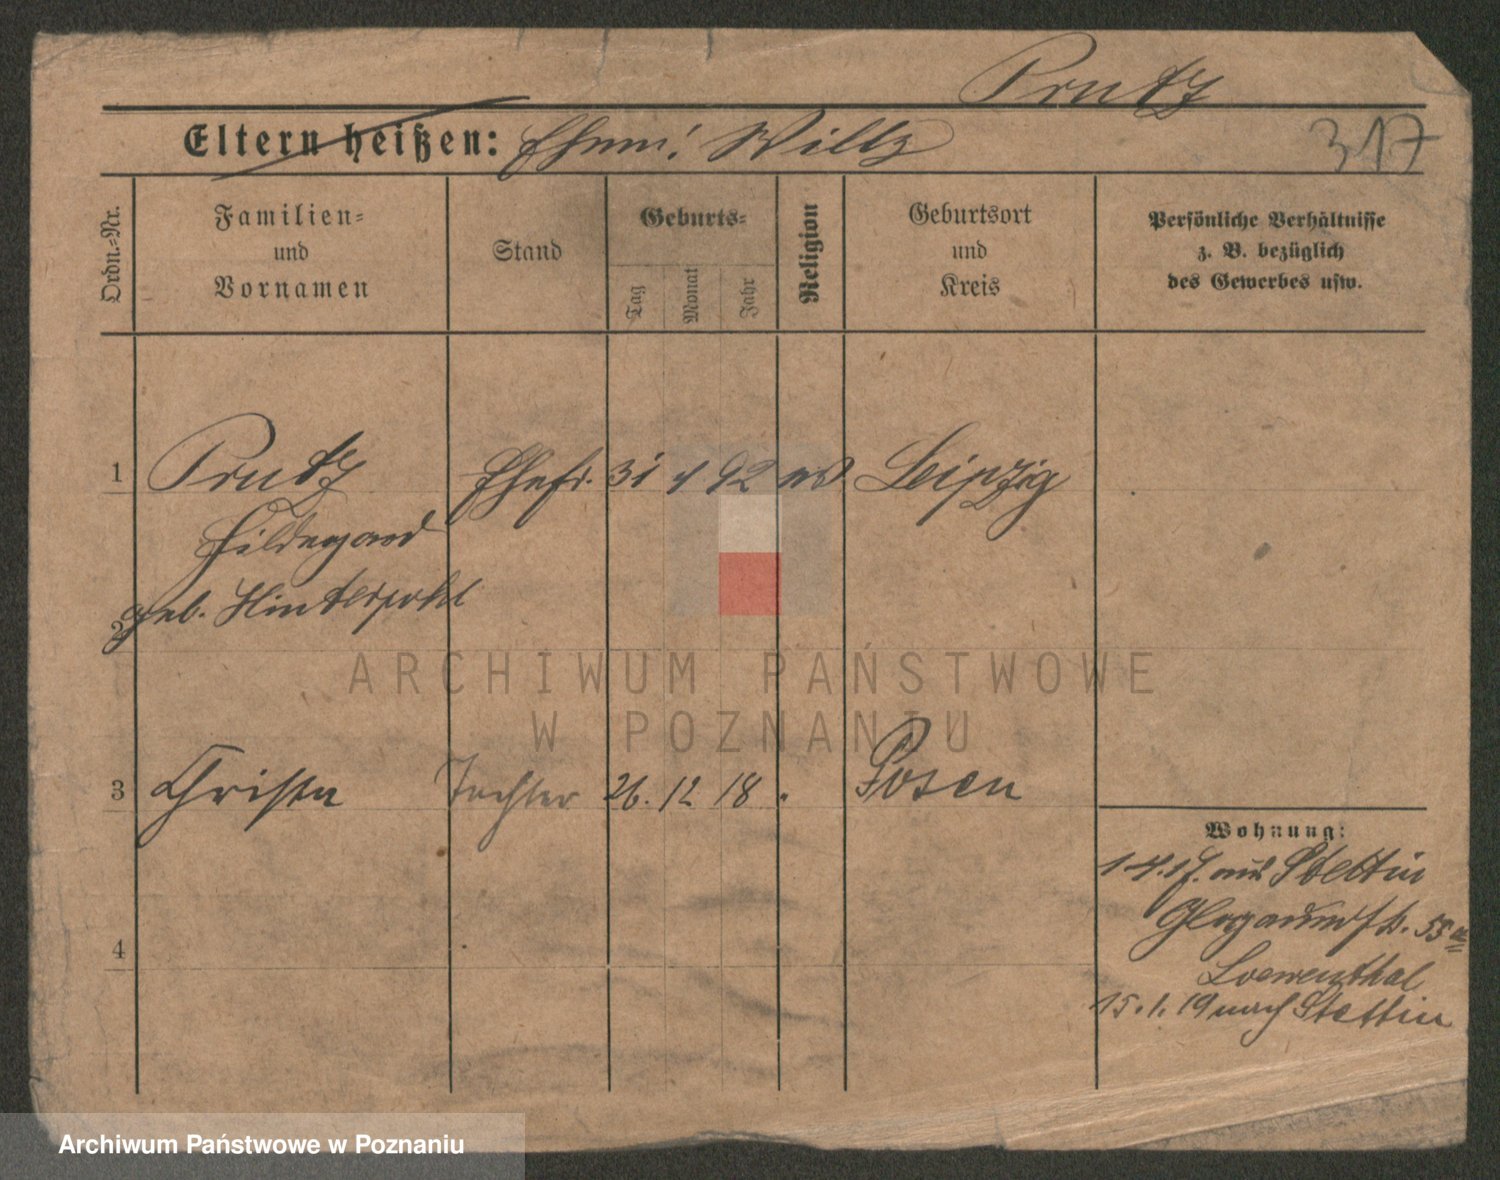 Prutz
Eltern heißen: Ehem: Willy
317
Ordn.-Nr.
Familien-
und
Vornamen
Stand
Geburts-
Tag
Monat
Jahr
Religion
Geburtsort
und
Kreis
Persönliche Verhältnisse
z. B. bezüglich
des Gewerbes usw.
1 Prutz Ehefr. 31 92 Leipzig
Hildegard
geb. Hinterpohl
2
3 Christa Tochter 26. 12 18 " Posen
4
Wohnung:
1.4.17. aus Stettin
Glogauerstr. 55a
Loewenthal
15. 1. 19 nach Stettin
ARCHIWUM PAŃSTWOWE
W POZNANIU
Archiwum Państwowe w Poznaniu